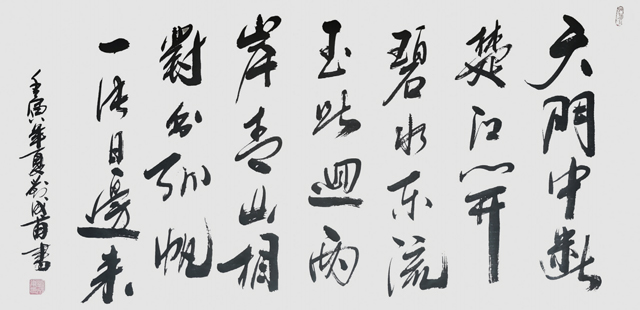 天門中斷
楚江開
碧水东流
至此迴兩
岸青山相
對出孤帆
一片日邊来
壬寅年夏書